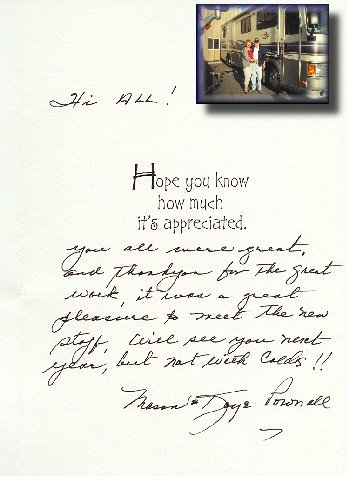 Hi ALL!
Hope you know
how much
it's appreciated.
You all were great,
and thankyou for the great
work, it was a great
pleasure to meet the new
staff, Will see you next
year, but not with Colds!!
& Faye Pownall